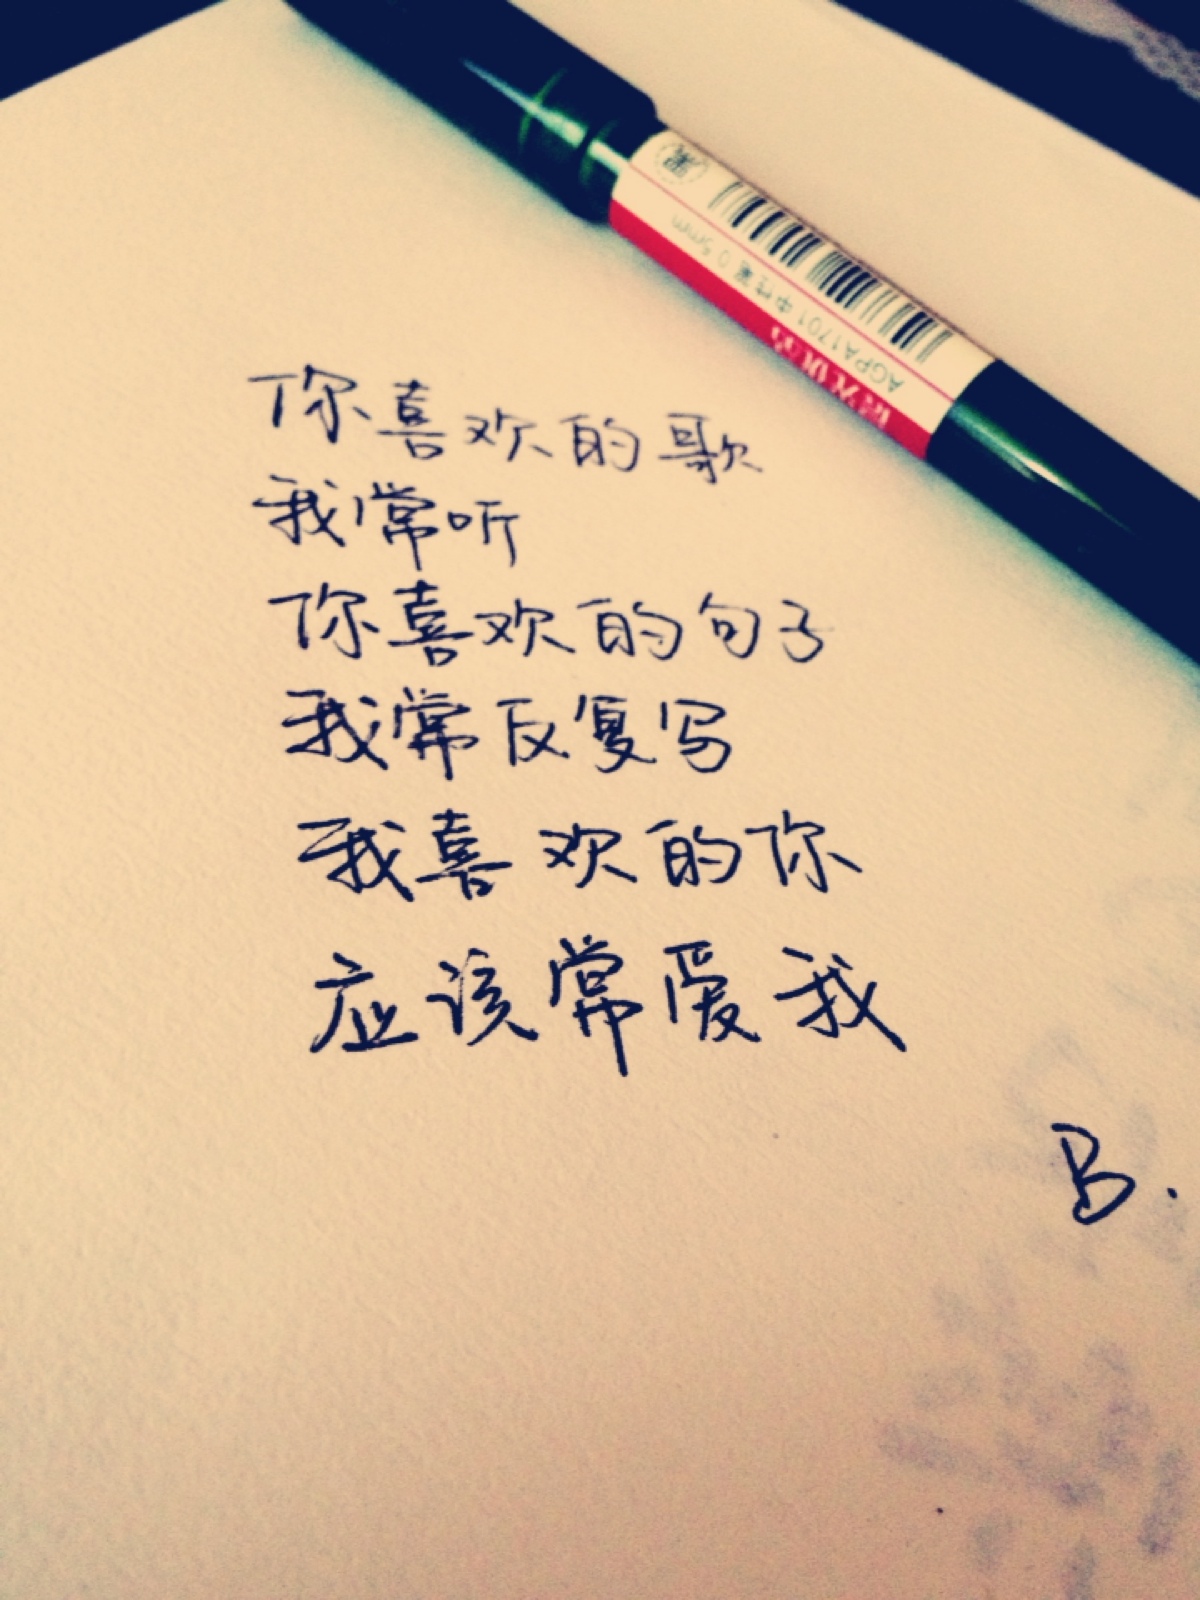 黑
AGPA1701中性笔 0.5mm
晨光优品
你喜欢的歌
我常听
你喜欢的句子
我常反复写
我喜欢的你
应该常爱我
B.